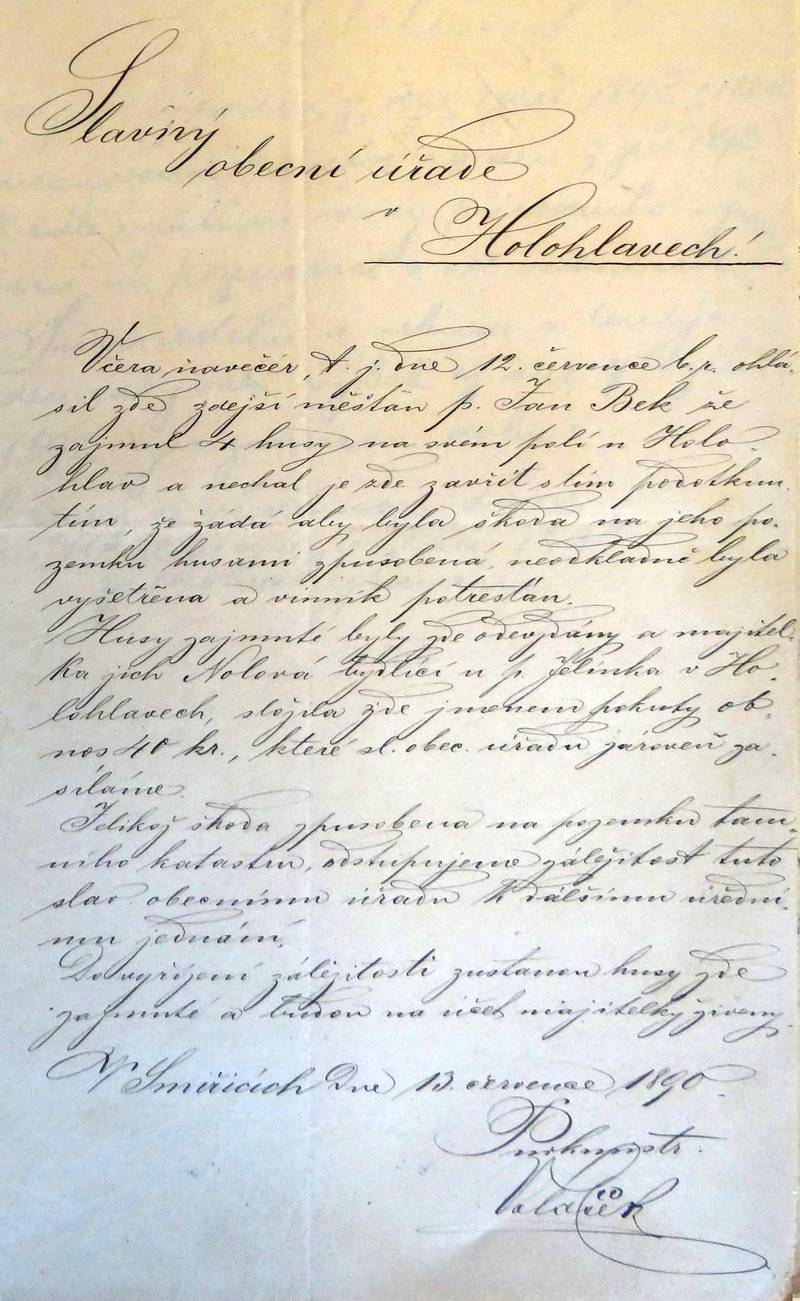 Slavný
obecní úřade
v
Holohlavech!
Včera navečér, t. j. dne 12. července b. r. ohlá-
sil zde zdejší měšťán p. Jan Bek že
zajmul 4 husy na svém polí u Holo-
hlav a nechal je zde zavřít s tím podotknu-
tím, že žádá aby byla škoda na jeho po-
zemku husami způsobená, neodkladně byla
vyšetřěna a vinník potrestán.
Husy zajmuté byly zde odevzdány a majitel-
ka jich Nolová bydlící u p. Jelínka v Ho-
lohlavech, složila zde jmenem pokuty ob-
nos 40 kr., které sl. obec. úřadu zároveň za-
síláme.
Jelikož škoda způsobena na pozemku tam-
ního katastru, odstupujeme záležitost tuto
slav. obecnímu úřadu k dalšímu úřední-
mu jednání.
Do vyřízení záležitosti zustanou husy zde
zajmuté a budou na účet majitelky živeny.
V Smiřicích dne 13. července 1890.
Purkmistr.